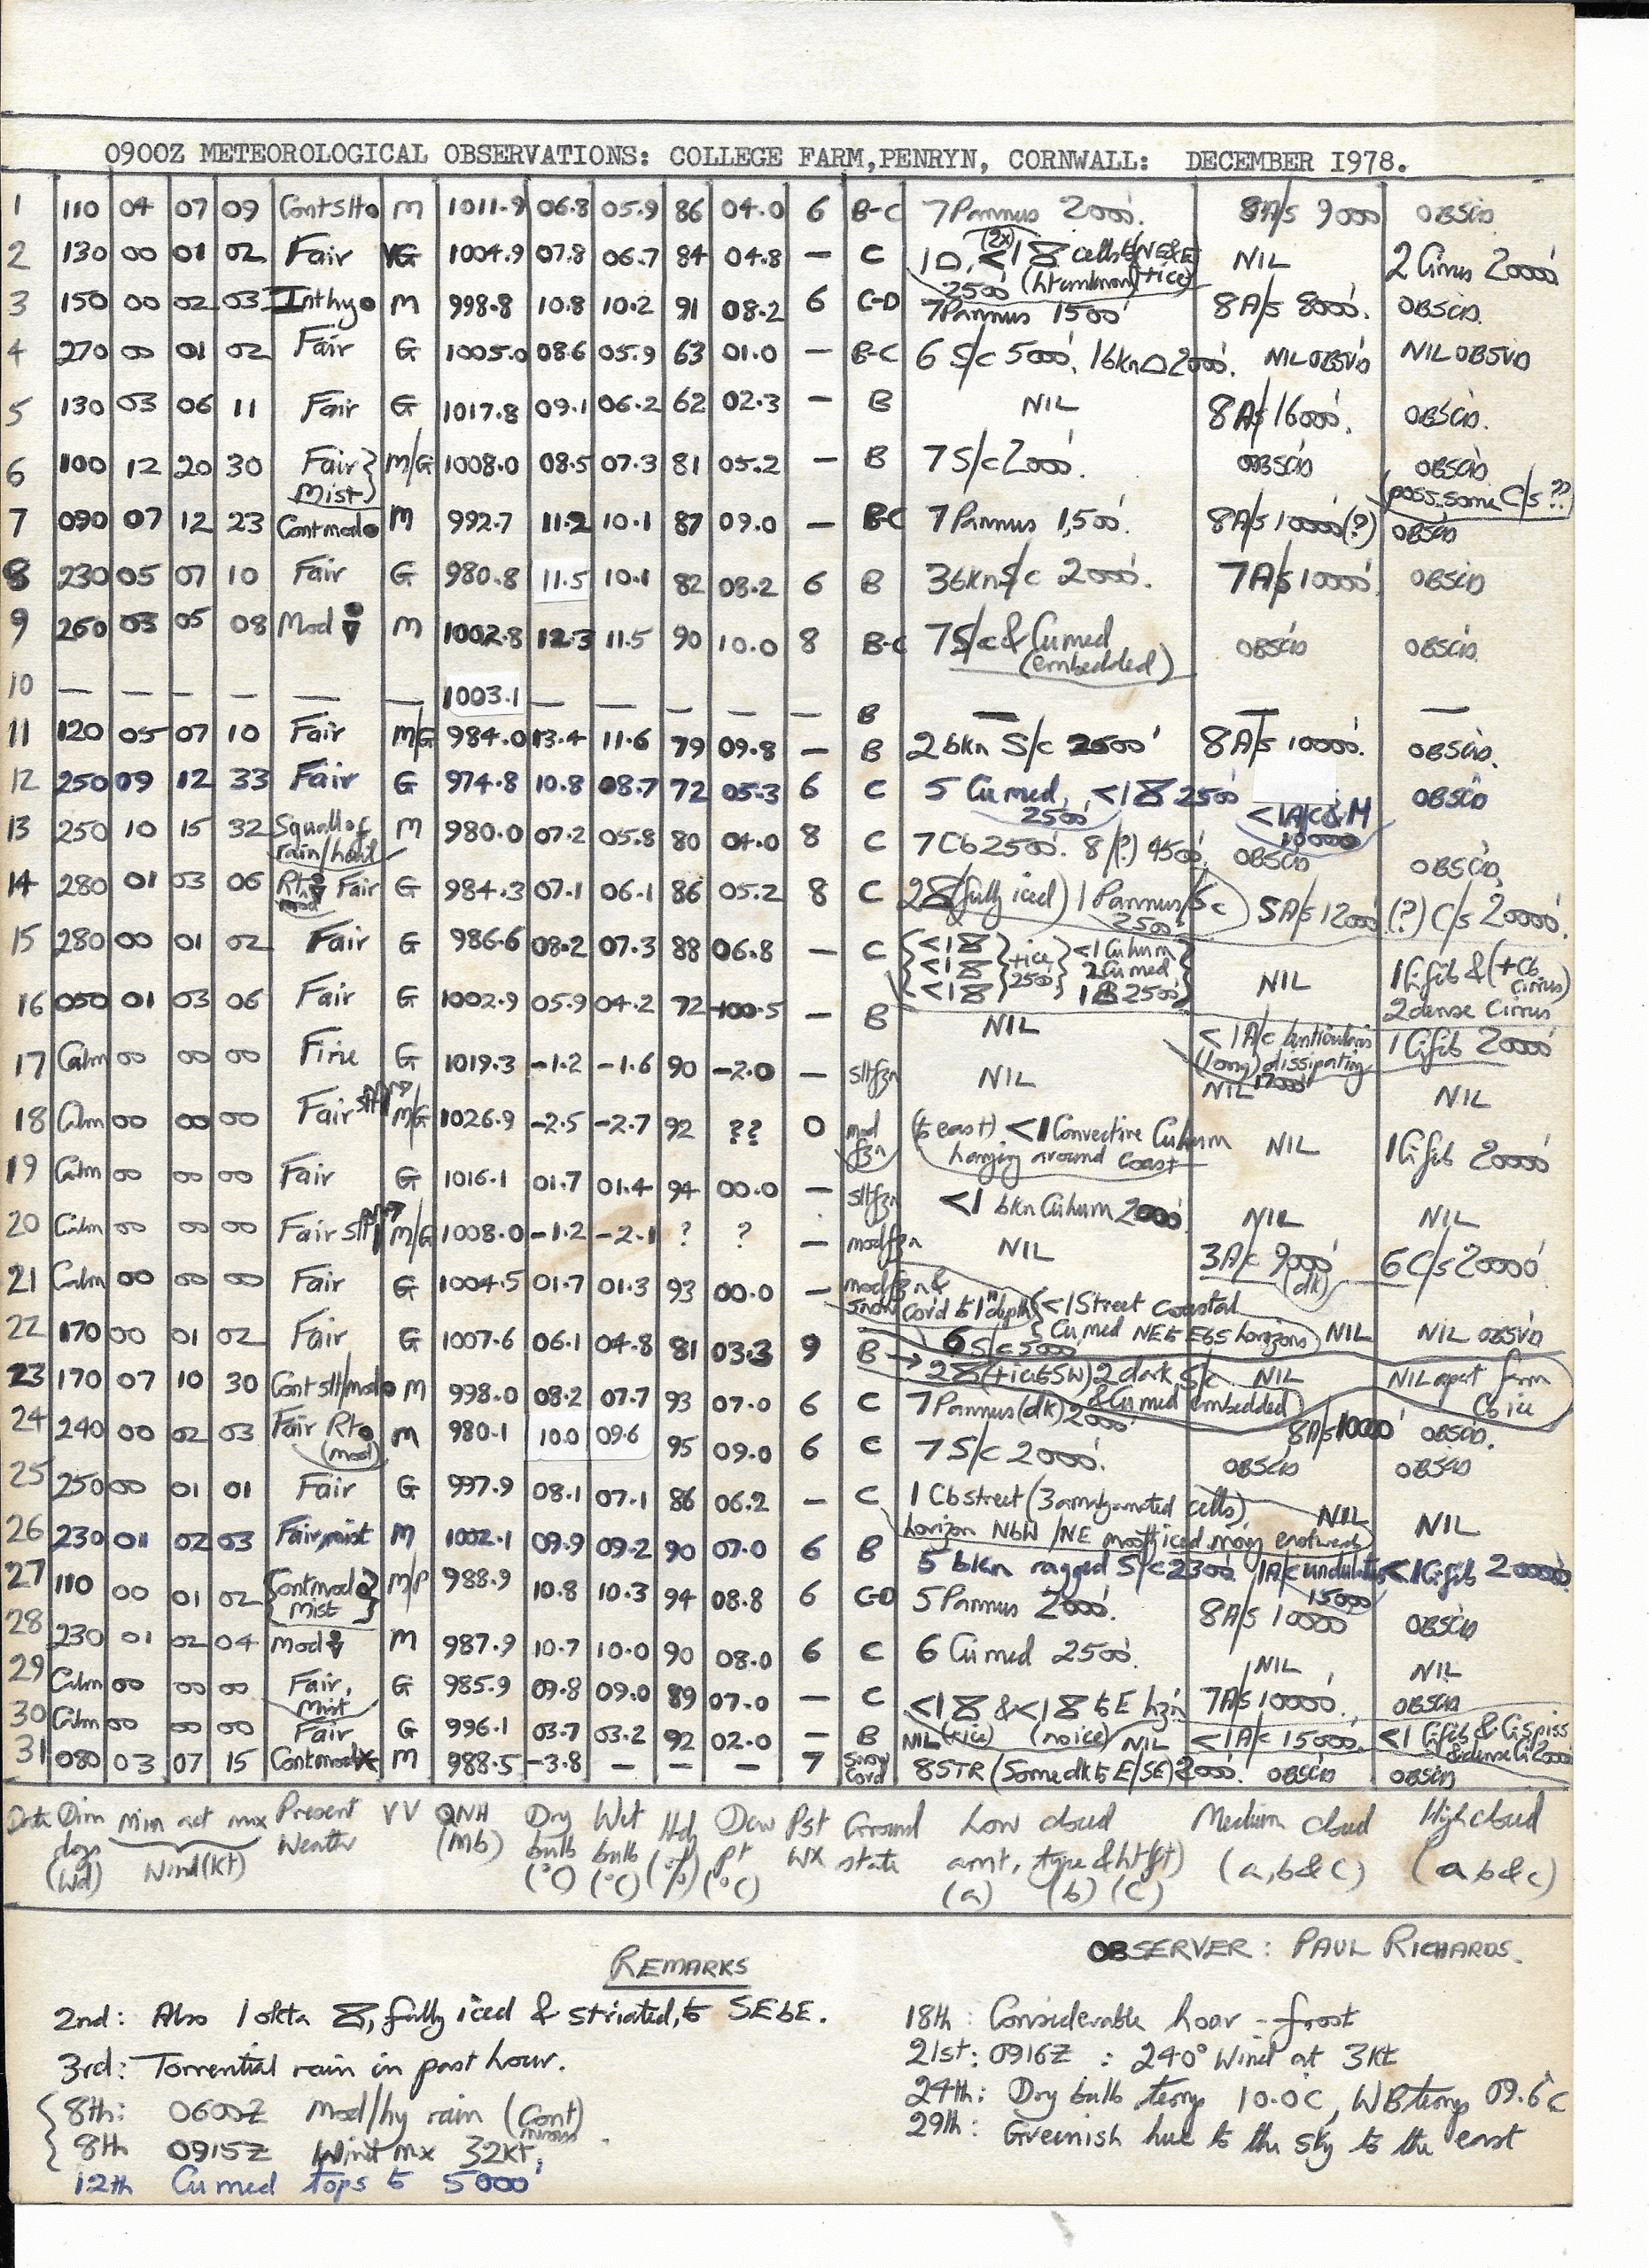 0900Z METEOROLOGICAL OBSERVATIONS: COLLEGE FARM,PENRYN, CORNWALL: DECEMBER I978.
1 110 04 07 09 Cont slt M 1011.9 06.8 05.9 86 04.0 6 B-C 7 Pannus 2000'. 8A/s 9000 OBSCD.
2 130 00 01 02 Fair VG 1004.9 07.8 06.7 84 04.8 — C (2x) <1 cells to NE&E 2500' (ht unknown) (+ice) NIL 2 Cirrus 20000'
3 150 00 02 03 Int hy M 998.8 10.8 10.2 91 08.2 6 C-D 7 Pannus 1500' 8A/s 8000'. OBSCD.
4 270 00 01 02 Fair G 1005.0 08.6 05.9 63 01.0 — B-C 6 S/c 5000', 1 bkn 2000'. NIL OBSVD NIL OBSVD
5 130 03 06 11 Fair G 1017.8 09.1 06.2 62 02.3 — B NIL 8A/s 16000'. OBSCD.
6 100 12 20 30 Fair Mist} M/G 1008.0 08.5 07.3 81 05.2 — B 7 S/c 2000'. OBSCD OBSCD (poss. some C/s ??)
7 090 07 12 23 Cont mod M 992.7 11.2 10.1 87 09.0 — B-C 7 Pannus 1,500'. 8A/s 10000'(?) OBSCD
8 230 05 07 10 Fair G 980.8 11.5 10.1 82 08.2 6 B 3 bkn S/c 2000'. 7A/s 10000' OBSCD
9 260 03 05 08 Mod M 1002.8 12.3 11.5 90 10.0 8 B-C 7 S/c & Cu med (embedded) OBSCD OBSCD.
10 — — — — — — 1003.1 — — — — — B — — —
11 120 05 07 10 Fair M/G 984.0 13.4 11.6 79 09.8 — B 2 bkn S/c 2500' 8A/s 10000'. OBSCD.
12 250 09 12 33 Fair G 974.8 10.8 08.7 72 05.3 6 C 5 Cu med, 2500' <1 2500' <1 10000 OBSCD
13 250 10 15 32 Squall of rain/hail M 980.0 07.2 05.8 80 04.0 8 C 7 Cb 2500'. 8/(?) 4500'. OBSCD OBSCD,
14 280 01 03 06 Rt mod Fair G 984.3 07.1 06.1 86 05.2 8 C 2 (fully iced) 1 Pannus/Sc 2500' 5A/s 12000' (?) C/s 20000'.
15 280 00 01 02 Fair G 986.6 08.2 07.3 88 06.8 — C {<1 <1 <1 } +ice 2500' } <1 Cu hum 2 Cu med 2500'} NIL 1 Ci fib & (+Cb cirrus) 2 dense Cirrus
16 050 01 03 06 Fair G 1002.9 05.9 04.2 72 +00.5 — B NIL <1 A/c lenticularis (long) dissipating 17000' 1 Ci fib 20000'
17 Calm 00 00 00 Fine G 1019.3 -1.2 -1.6 90 -2.0 — slt fzn NIL NIL NIL
18 Calm 00 00 00 Fair slt M/G 1026.9 -2.5 -2.7 92 ?? 0 mod fzn (to east) <1 Convective Cu hum hanging around coast NIL 1 Ci fib 20000'
19 Calm 00 00 00 Fair G 1016.1 01.7 01.4 94 00.0 — slt fzn <1 bkn Cu hum 2000' NIL NIL
20 Calm 00 00 00 Fair slt M/G 1008.0 -1.2 -2.1 ? ? — mod fzn NIL 3A/c 9000' (dk) 6 C/s 20000'
21 Calm 00 00 00 Fair G 1004.5 01.7 01.3 93 00.0 — mod fzn & snow cov'd to 1" depth {<1 Street coastal Cu med NE to E b S horizons) NIL NIL OBSVD
22 170 00 01 02 Fair G 1007.6 06.1 04.8 81 03.3 9 B 6 S/c 5000' → 2 (+ice to SW) 2 dark S/c & Cu med embedded) NIL NIL apart from Cb ice
23 170 07 10 30 Cont slt/mod M 998.0 08.2 07.7 93 07.0 6 C 7 Pannus (dk) 2000' 8A/s 10000' OBSCD.
24 240 00 02 03 Fair Rt (mod) M 980.1 10.0 09.6 95 09.0 6 C 7 S/c 2000'. OBSCD OBSCD
25 250 00 01 01 Fair G 997.9 08.1 07.1 86 06.2 — C 1 Cb street (3 amalgamated cells) horizon NbW/NE mostly iced moving eastward NIL NIL
26 230 01 02 03 Fair, mist M 1002.1 09.9 09.2 90 07.0 6 B 5 bkn ragged S/c 2300' 1A/c undulatus 15000 <1 Ci fib 20000'
27 110 00 01 02 {Cont mod Mist} M/P 988.9 10.8 10.3 94 08.8 6 C-D 5 Pannus 2000'. 8A/s 10000 OBSCD
28 230 01 02 04 Mod M 987.9 10.7 10.0 90 08.0 6 C 6 Cu med 2500'. NIL NIL
29 Calm 00 00 00 Fair, Mist G 985.9 09.8 09.0 89 07.0 — C <1 & <1 to E hzn (+ice) (no ice) 7A/s 10000'. OBSCD
30 Calm 00 00 00 Fair G 996.1 03.7 03.2 92 02.0 — B NIL NIL <1A/c 15000'. <1 Ci fib & Ci spiss & dense Ci 20000'
31 080 03 07 15 Cont mod M 988.5 -3.8 — — — 7 Snow Cov'd 8 STR (Some dk to E/SE) 2000'. OBSCD OBSCD
Date Dirn degs (Wd) Min act mx Wind (Kt) Present Weather VV QNH (Mb) Dry bulb (°C) Wet bulb (°C) Hdy (%) Dew pt (°C) Pst Wx Ground state Low cloud amt, type & ht (ft) (a) (b) (c) Medium cloud (a, b & c) High cloud (a, b & c)
OBSERVER: PAUL RICHARDS.
REMARKS
2nd: Also 1 okta , fully iced & striated, to SEbE.
3rd: Torrential rain in past hour.
8th: 0600Z Mod/hy rain (Cont)
8th 0915Z Wind mx 32kt,
12th Cu med tops to 5000'
18th: Considerable hoar-frost
21st: 0916Z : 240° Wind at 3Kt
24th: Dry bulb temp 10.0C, WB temp 09.6°C
29th: Greenish hue to the sky to the east